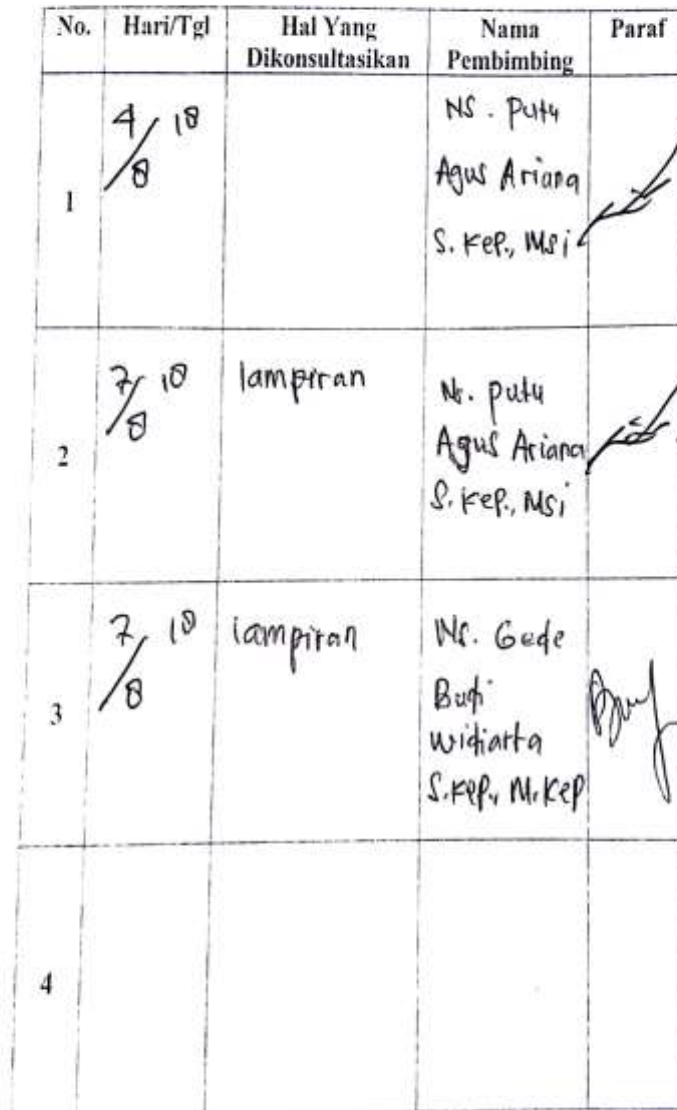 No. Hari/Tgl Hal Yang Dikonsultasikan Nama Pembimbing Paraf
1 4/8 18 Ns. Putu
Agus Ariana
S.Kep., Msi
2 7/8 18 lampiran Ns. putu
Agus Ariana
S.Kep., Msi
3 7/8 18 lampiran Ns. Gede
Budi
widiarta
S.Kep., M.Kep
4